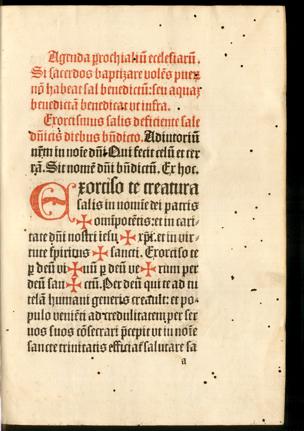 Agenda ꝑrochialiū ecclesiarū.
Si sacerdos baptizare volēs puex
nō habeat sal benedictū: seu aquaꝫ
benedictā benedicat ut infra.
Exorcismus salis deficiente sale
dn̄icis diebus bn̄dicto. Adiutoriū
nr̄m in noīe dn̄i. Qui fecit celū et ter
rā. Sit nomē dn̄i bn̄dictū. Ex hoc.
Exorciso te creatura
salis in nomīe dei patris
✠ om̄ipotētis: et in cari
tate dn̄i nostri iesu ✠ xp̄i: et in vir
tute spiritus ✠ sancti. Exorciso te
ꝑ deū vi ✠ uū ꝑ deū ve ✠ rum per
deū san ✠ ctū. Per deū qui te ad tu
telā humani generis creauit: et po
pulo veniēti ad credulitatem per ser
uos suos cōsecrari p̄cepit ut in noīe
sancte trinitatis efficiar̄ salutare sa
a